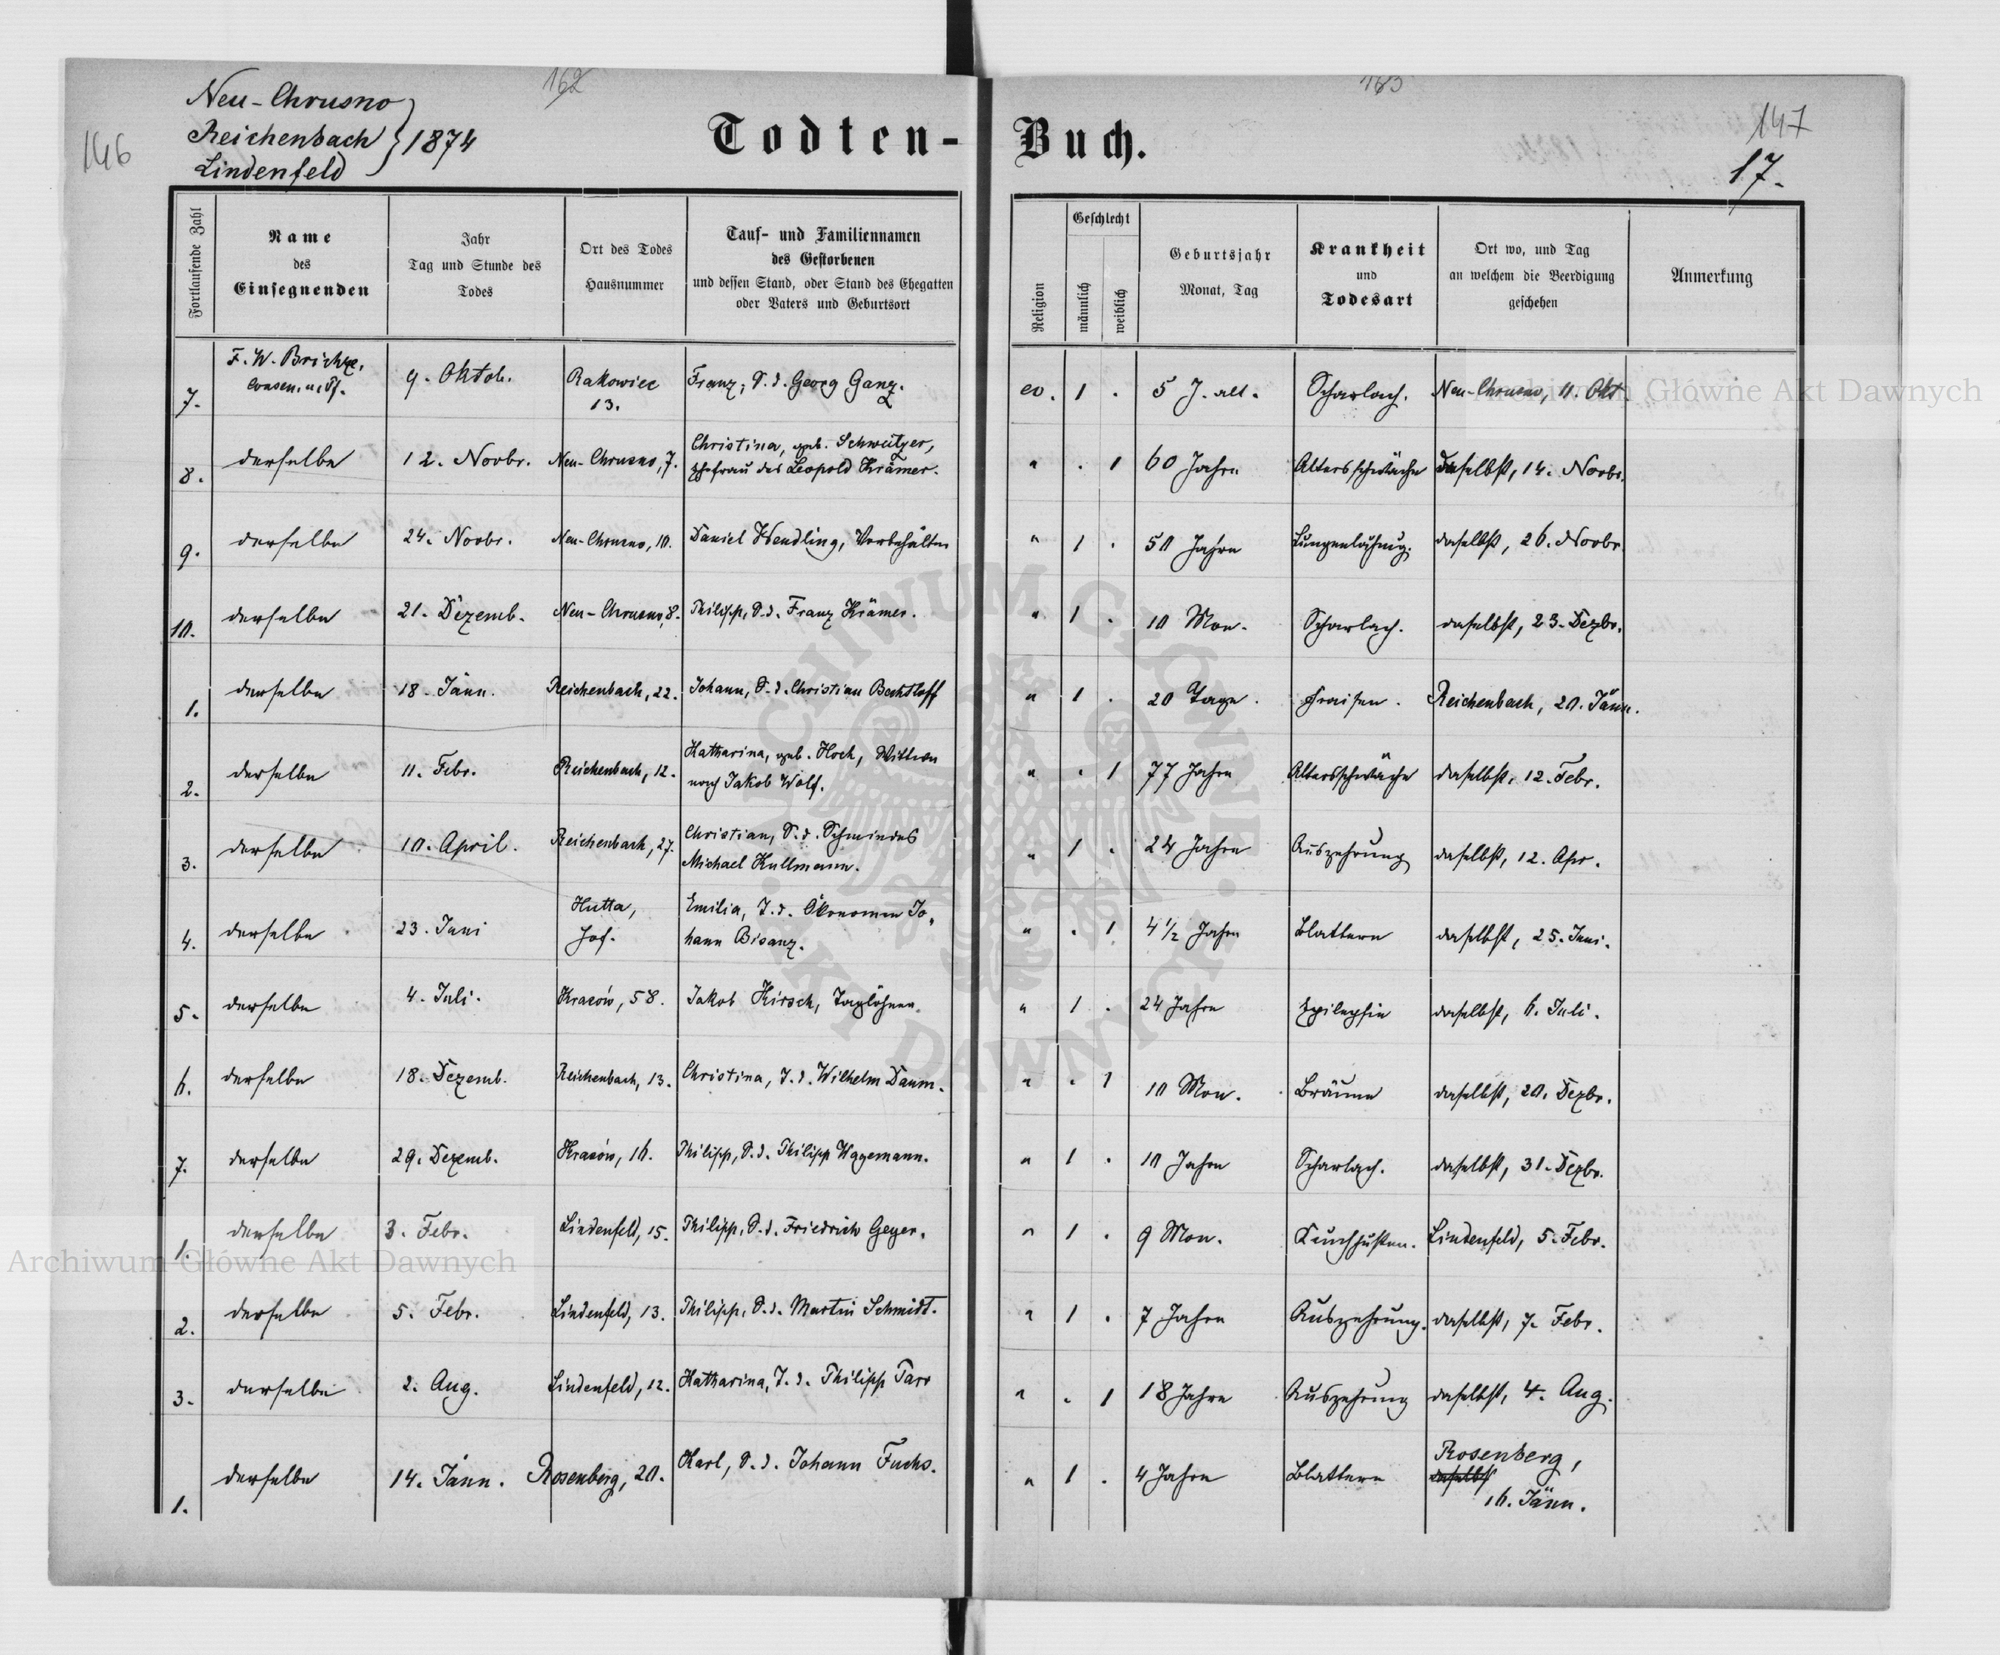 162
163
146
147
17.
Neu-Chrusno
Reichenbach } 1874
Lindenfeld
Todten-Buch.
Fortlaufende Zahl
Name
des
Einsegnenden
Jahr
Tag und Stunde des
Todes
Ort des Todes
Hausnummer
Tauf- und Familiennamen
des Gestorbenen
und dessen Stand, oder Stand des Ehegatten
oder Vaters und Geburtsort
Religion
Geschlecht
männlich
weiblich
Geburtsjahr
Monat, Tag
Krankheit
und
Todesart
Ort wo, und Tag
an welchem die Beerdigung
geschehen
Anmerkung
7. F. W. 9. Oktob. Rakowiec 13. Franz, S. d. Georg Ganz. ev. 1 . 5 J. alt. Scharlach. Neu-Chrusno, 11. Okt.
8. derselbe 12. Novbr. Neu-Chrusno, 7. Christina, geb. Schweitzer,
Ehefrau des Leopold Krämer. " . 1 60 Jahre Altersschwäche daselbst, 14. Novbr.
9. derselbe 24. Novbr. Neu-Chrusno, 10. Daniel Wendling, " 1 . 50 Jahre Lungenlähmg. daselbst, 26. Novbr.
10. derselbe 21. Dezemb. Neu-Chrusno, 8. Philipp, S. d. Franz Krämer. " 1 . 10 Mon. Scharlach. daselbst, 23. Dezbr.
1. derselbe 18. Jänn. Reichenbach, 22. Johann, S. d. Christian Bechtloff " 1 . 20 Tage. Fraisen. Reichenbach, 20. Jänn.
2. derselbe 11. Febr. Reichenbach, 12. Katharina, geb. Hoch, Wittwe
nach Jakob Wolf. " . 1 77 Jahre Altersschwäche daselbst, 12. Febr.
3. derselbe 10. April. Reichenbach, 27. Christian, S. d. Schmiedes
Michael Kullmann. " 1 . 24 Jahre Auszehrung daselbst, 12. Apr.
4. derselbe 23. Juni Hutta,
Hof. Emilia, T. d. Ökonomen Jo-
hann Bisanz. " . 1 4 1/2 Jahre Blattern daselbst, 25. Juni.
5. derselbe 4. Juli. Krasów, 58. Jakob Hirsch, Taglöhner. " 1 . 24 Jahre Epilepsie daselbst, 6. Juli.
6. derselbe 18. Dezemb. Reichenbach, 13. Christina, T. d. Wilhelm Daum. " . 1 10 Mon. Bräune daselbst, 20. Dezbr.
7. derselbe 29. Dezemb. Krasów, 16. Philipp, S. d. Philipp Wagemann. " 1 . 10 Jahre Scharlach. daselbst, 31. Dezbr.
1. derselbe 3. Febr. Lindenfeld, 15. Philipp, S. d. Friedrich Geyer. " 1 . 9 Mon. Keuchhusten. Lindenfeld, 5. Febr.
2. derselbe 5. Febr. Lindenfeld, 13. Philipp, S. d. Martin Schmidt. " 1 . 7 Jahre Auszehrung. daselbst, 7. Febr.
3. derselbe 2. Aug. Lindenfeld, 12. Katharina, T. d. Philipp Parr " . 1 18 Jahre Auszehrung daselbst, 4. Aug.
1. derselbe 14. Jänn. Rosenberg, 20. Karl, S. d. Johann Fuchs. " 1 . 4 Jahre Blattern Rosenberg,
daselbst
16. Jänn.
Archiwum Główne Akt Dawnych
Archiwum Główne Akt Dawnych
ARCHIWUM GŁÓWNE AKT DAWNYCH